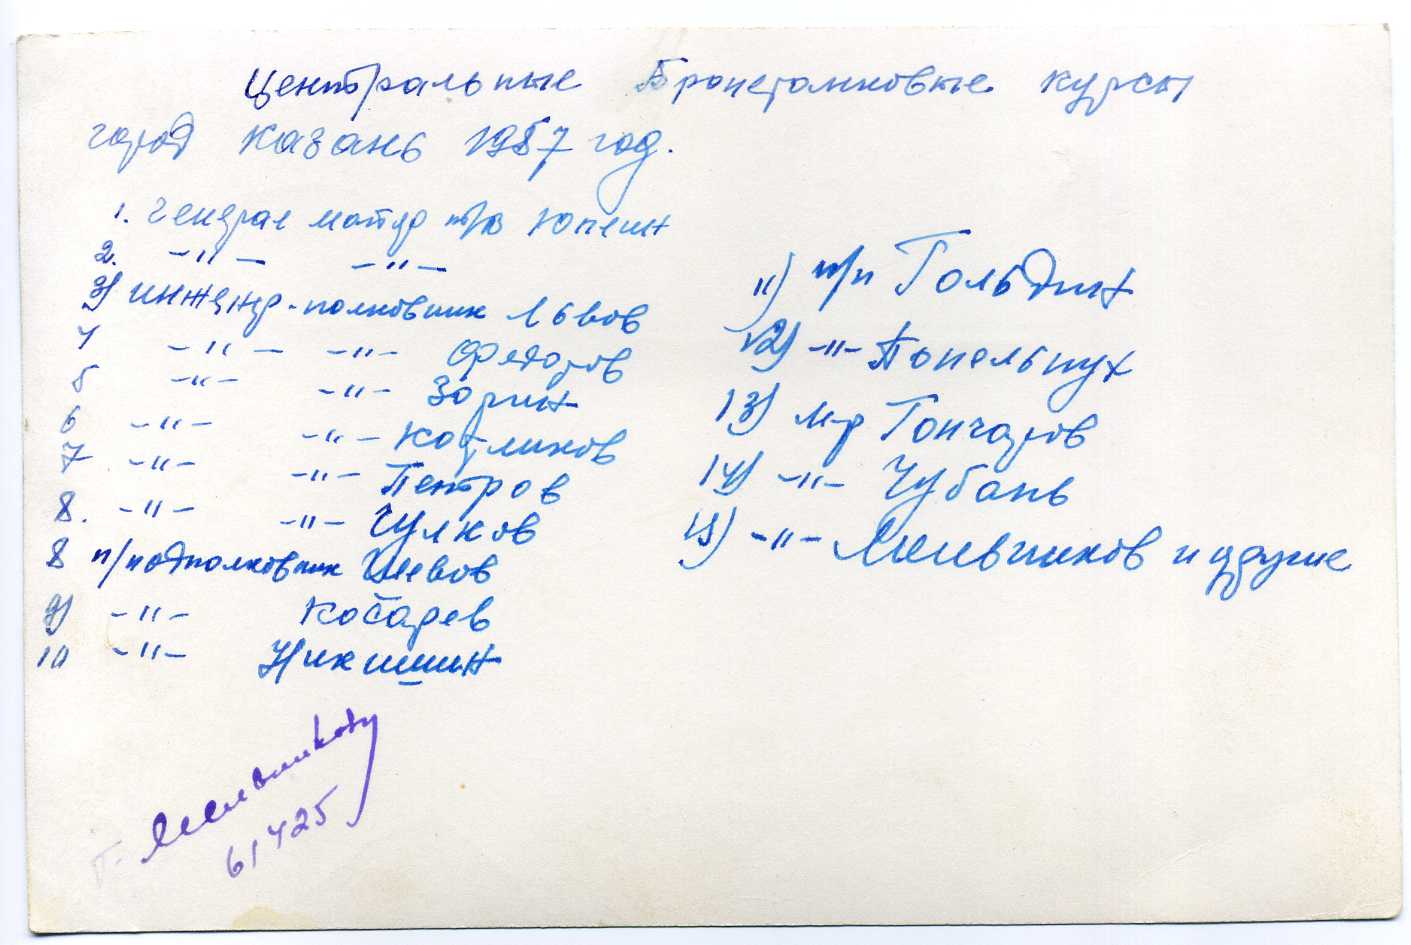 Центральные Бронетанковые курсы
город Казань 1957 год.
1. Генерал майор т/в Юпеин
2. -"- -"-
3) инженер-полковник Львов
4 -"- -"- Федоров
5 -"- -"- Зорин
6 -"- -"- Котликов
7 -"- -"- Пентров
8. -"- -"- Чулков
8 п/подполковник Глебов
9) -"- Косарев
10 -"- Никишин
11) п/п Гольдин
12) -"- Попельнух
13) м-р Гончаров
14) -"- Чубань
15) -"- Мельников и другие
Г. Мельникову
61425